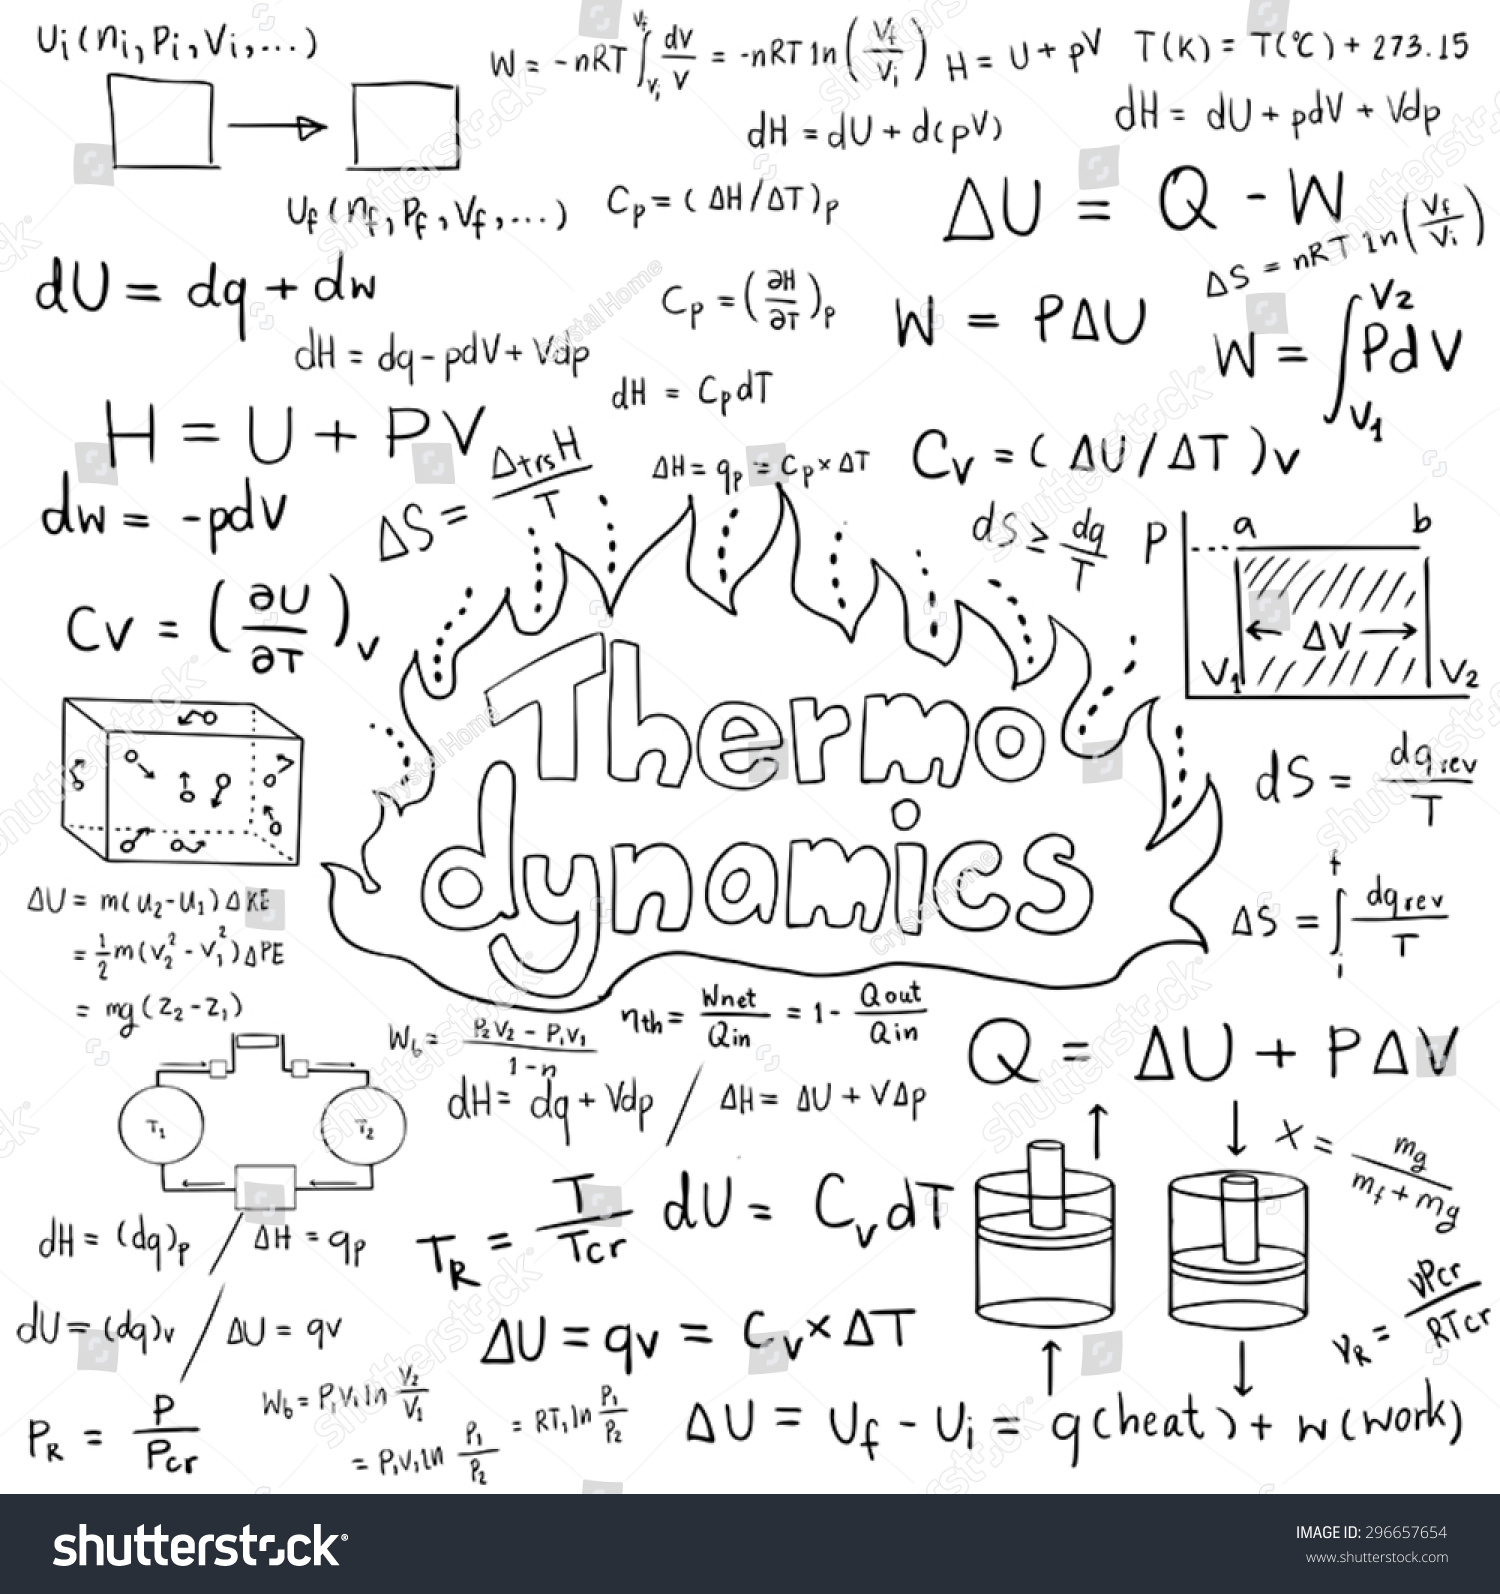 Ui(ni,Pi,Vi,...)
W = -nRT ∫Vi Vf dV/V = -nRT ln(Vf/Vi)
H = U + pV
T(K) = T(°C) + 273.15
dH = dU + d(pV)
dH = dU + pdV + Vdp
Uf(nf,Pf,Vf,...)
Cp = (ΔH/ΔT)p
ΔU = Q - W
ΔS = nRT ln(Vf/Vi)
dU = dq + dw
Cp = (∂H/∂T)p
W = PΔU
W = ∫V1 V2 PdV
dH = dq - pdV + Vdp
dH = CpdT
H = U + PV
ΔS = ΔtrsH/T
ΔH = qp = Cp×ΔT
Cv = (ΔU/ΔT)v
dw = -pdV
dS ≥ dq/T
P a b
ΔV
V1 V2
Cv = (∂U/∂T)v
Thermo
dynamics
dS = dqrev/T
ΔS = ∫i f dqrev/T
ΔU = m(u2-u1)ΔKE
= 1/2 m(v2² - v1²)ΔPE
= mg(z2-z1)
Wb = P2V2 - P1V1/1-n
ηth = Wnet/Qin = 1 - Qout/Qin
Q = ΔU + PΔV
T1 T2
dH = dq + Vdp / ΔH = ΔU + VΔp
X = mg/mf+mg
dH = (dq)p / ΔH = qp
TR = T/Tcr
dU = CvdT
dU = (dq)v / ΔU = qv
ΔU = qv = Cv×ΔT
VR = vPcr/RTcr
PR = P/Pcr
Wb = P1V1ln V2/V1
= P1V1ln P1/P2 = RT1ln P1/P2
ΔU = Uf - Ui = q(heat) + w(work)
shutterstock
IMAGE ID: 296657654
www.shutterstock.com